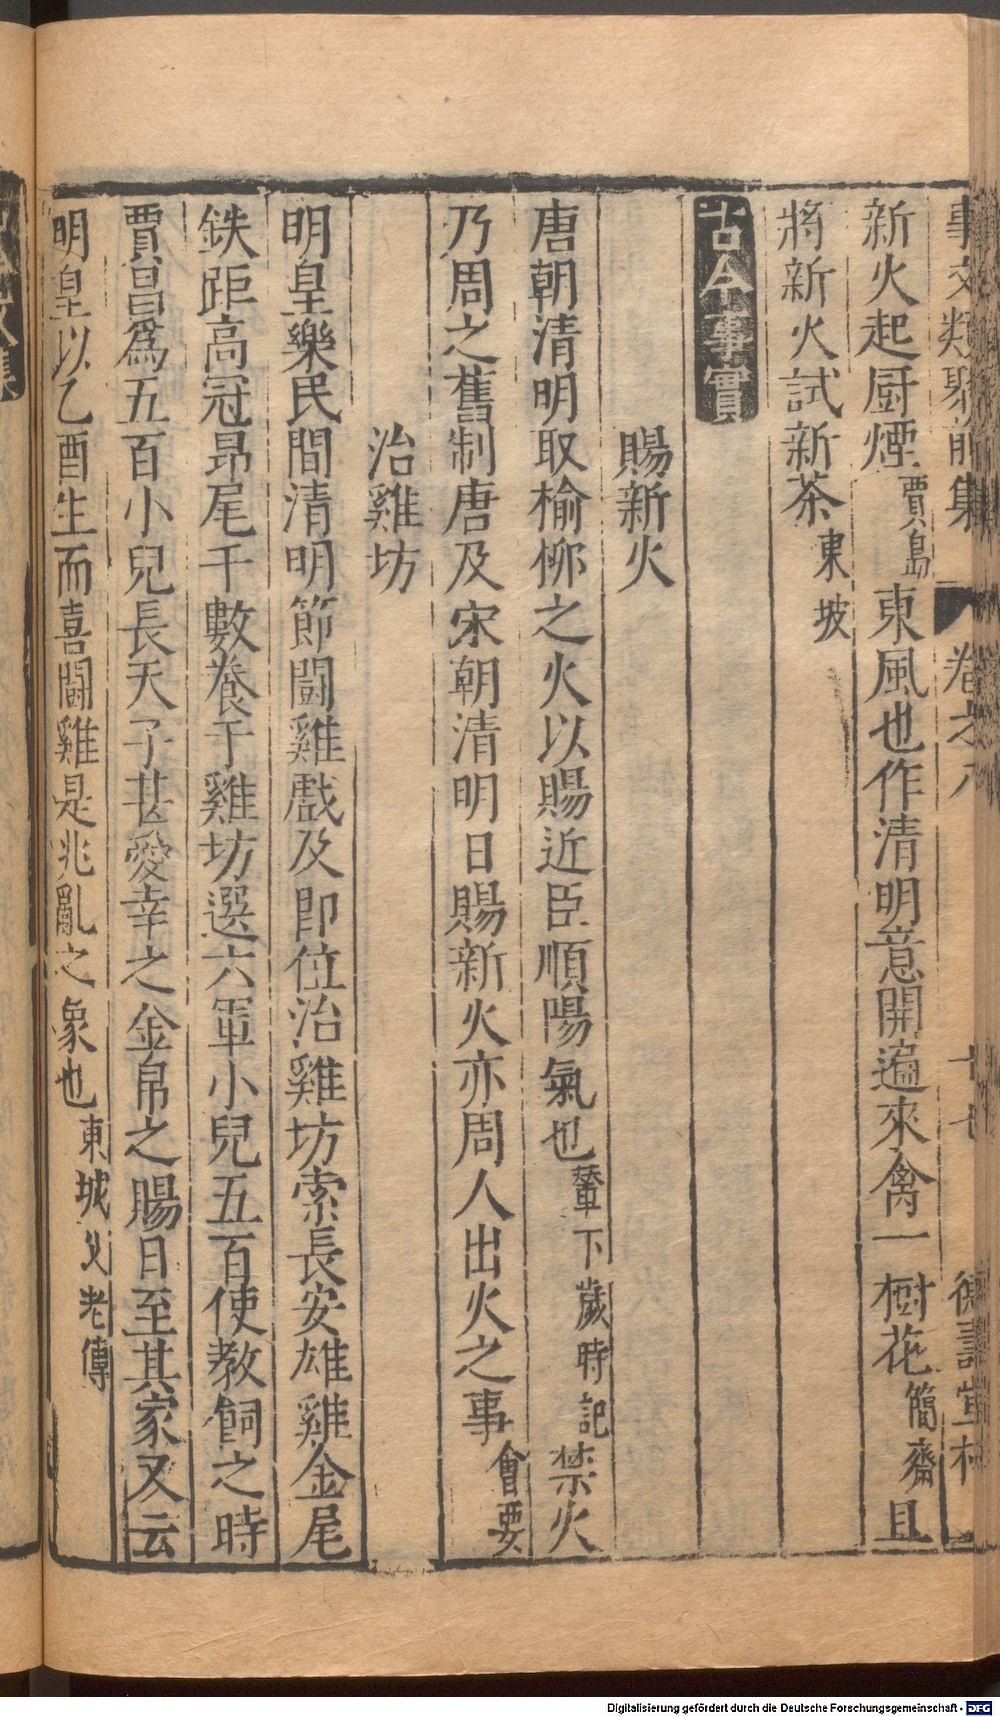 事文類聚前集 卷之八 十七 德壽堂梓
新火起厨煙賈島東風也作清明意開遍來禽一樹花簡齋且
將新火試新茶東坡
古今事實
賜新火
唐朝清明取榆柳之火以賜近臣順陽氣也輦下歲時記禁火
乃周之舊制唐及宋朝清明日賜新火亦周人出火之事會要
治雞坊
明皇樂民間清明節鬪雞戲及即位治雞坊索長安雄雞金尾
鉄距高冠昂尾千數養于雞坊選六軍小兒五百使教飼之時
賈昌爲五百小兒長天子甚愛幸之金帛之賜日至其家又云
明皇以乙酉生而喜鬪雞是兆亂之象也東城父老傳
Digitalisierung gefördert durch die Deutsche Forschungsgemeinschaft - DFG